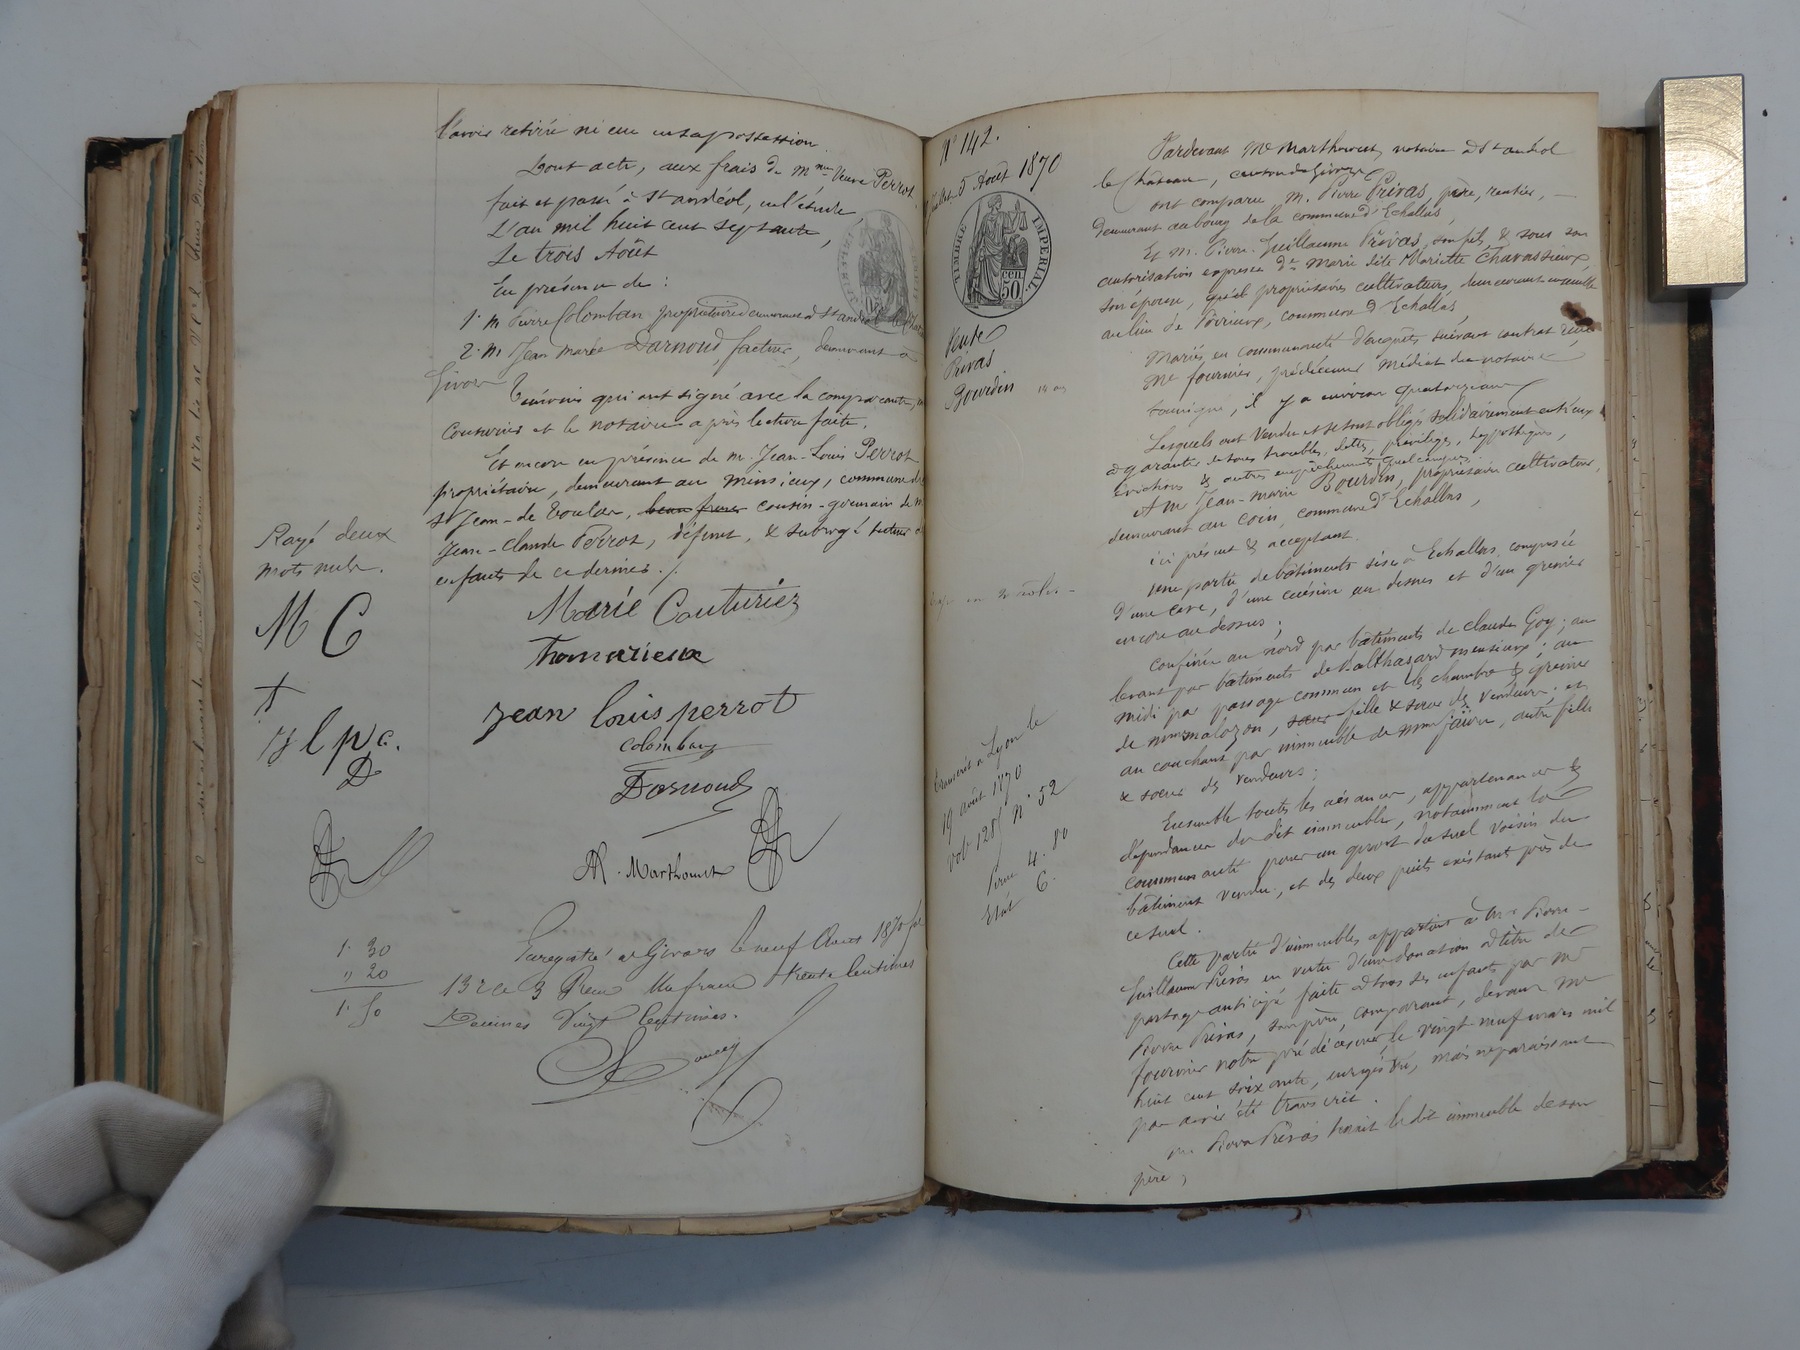 l'avoir retirée ni eue en sa possession.
Dont acte, aux frais de Mme Veuve Perrot,
fait et passé à St andéol, en l'étude,
L'an mil huit cent septante,
Le trois Août
En présence de :
1° M Pierre Colomban propriétaire demeurant à St andéol le
2° M. Jean Marie Darnoud, facteur, demeurant à
Givors
Témoins qui ont signé avec la comparante,
Couturier et le notaire après lecture faite.
Et encore en présence de M. Jean-Louis Perrot
propriétaire, demeurant au Minsieux, commune de
St Jean-de Toulas, beau frere cousin-germain de M
Jean-Claude Perrot, défunt, & subrogé tuteur
enfants de ce dernier ./.
Rayé deux
mots nuls.
M C
Marie Couturier
Thomarieux
jean louis perrot
j l p c.
D
Colomban
Darnoud
M. Marthouret
Enregistré à Givors le neuf Août 1870 fo
132 Ce 3 Reçu Un franc trente Centimes
Décimes Vingt Centimes.
1. 30
" 20
1. 50
N° 142.
5 Août 1870
TIMBRE IMPÉRIAL
50 cen
Vente
Privas
Bourdin
Transcrit à Lyon le
19 août 1870
vol 1285 N° 52
4. 80
Etat 6.
Pardevant Me Marthouret, notaire à St andéol
le Château, canton de Givors
ont comparu, M. Pierre Privas, père, rentier,
demeurant au bourg de la commune d'Echallas,
Et M. Pierre-Guillaume Privas, son fils, & sous son
autorisation expresse De Marie dite Mariette Chavassieux
son épouse, qu'il propriétaires cultivateurs, demeurant ensemble
au lieu de Poirieux, commune d'Echallas
Mariés en communauté d'acquêts suivant contrat reçu
Me fournier, prédécesseur médiat du notaire
soussigné, il y a environ quatorze ans
Lesquels ont vendu et se sont obligés solidairement entr'eux
à garantir de tous troubles, dettes, privilèges, hypothèques,
évictions & autres empêchements quelconques
A M Jean-Marie Bourdin, propriétaire cultivateur,
demeurant au Coin, commune d'Echallas,
ici présent & acceptant
une partie de bâtiments sise à Echallas, composée
d'une cave, d'une cuisine au dessus et d'un grenier
encore au dessus ;
confinée au nord par bâtiments de Claude Goy ; au
levant par bâtiments de Balthasard Mensieux ; au
midi par passage commun et les chambre & grenier
de Mme Malozon, sœur fille & sœur des vendeurs ; et
au couchant par immeuble de Mme Faure, autre fille
& sœur des vendeurs ;
Ensemble toutes les aisances, appartenances &
dépendances du dit immeuble, notamment la
communauté pour un quart du suel voisin du
bâtiment vendu, et des deux puits existant près de
ce suel.
Cette partie d'immeubles appartient à M. Pierre-
Guillaume Privas en vertu d'une donation à titre de
partage anticipé faite à tous ses enfants par Mr
Pierre Privas, son père, comparant, devant Me
fournier notre prédécesseur, le vingt neuf mars mil
huit cent soixante, enregistré, mais ne paraissant
pas avoir été transcrit.
M. Pierre Privas tenait le dit immeuble de son
père,